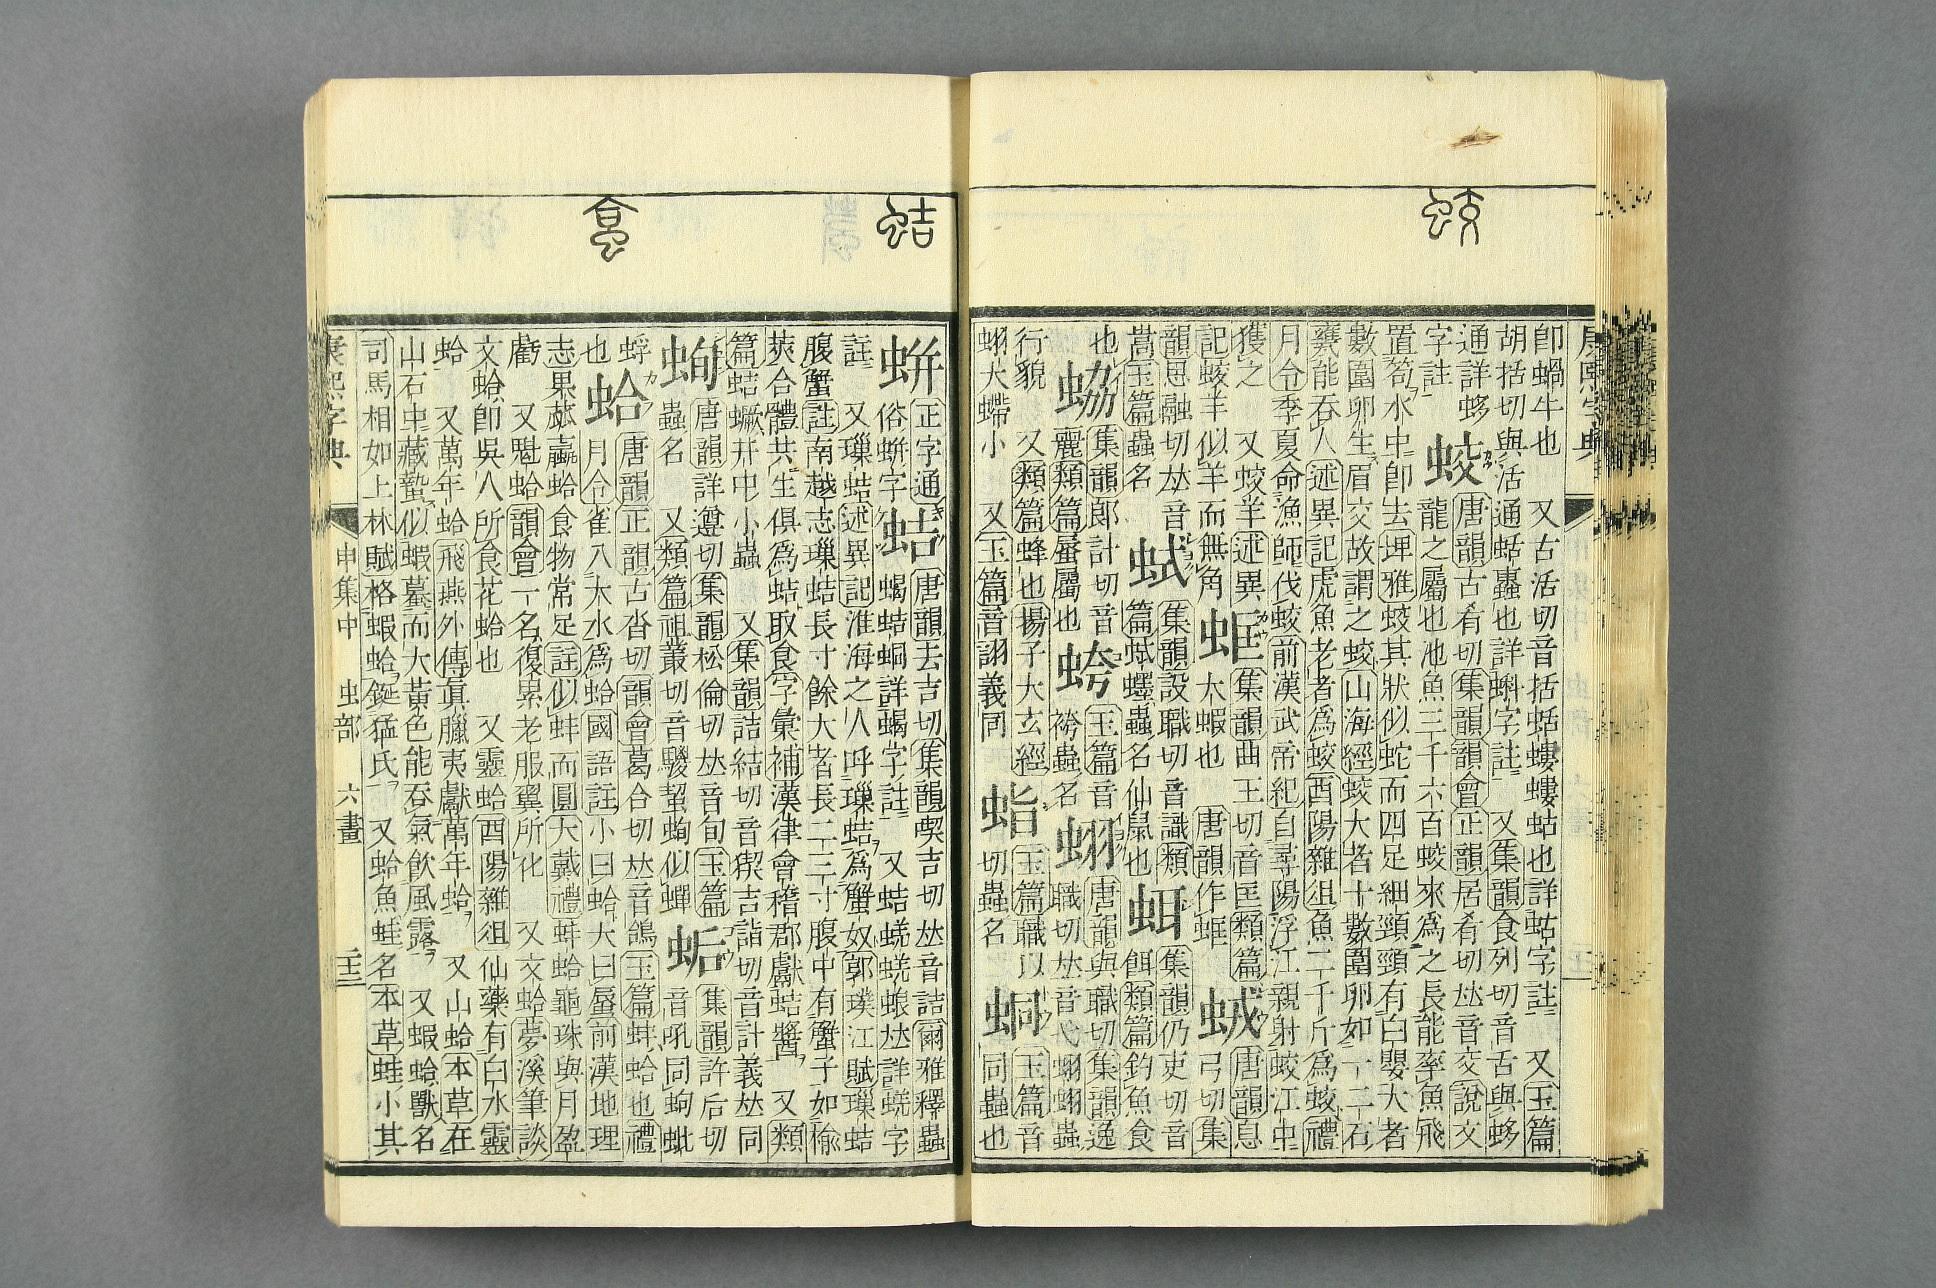 蛟
卽蝸牛也 又古活切音括蛞螻螻蛄也詳蛄字註 又玉篇
胡括切與活通蛞蠹也詳蝌字註 又集韻食列切音舌與蛥
通詳蛥 蛟 唐韻古肴切集韻韻會正韻居肴切𠀤音交說文
字註 龍之屬也池魚三千六百蛟來爲之長能率魚飛
置笱水中卽去埤雅蛟其狀似蛇而四足細頸頸有白嬰大者
數圍卵生眉交故謂之蛟山海經蛟大者十數圍卵如一二石
甕能吞人述異記虎魚老者爲蛟酉陽雜俎魚二千斤爲蛟禮
月令季夏命漁師伐蛟前漢武帝紀自尋陽浮江親射蛟江中
獲之 又蛟羊述異 集韻曲王切音匡類篇 唐韻息
記蛟羊似羊而無角 大蝦也 唐韻作 蛨 弓切集
韻思融切𠀤音 集韻設職切音識類 集韻仍吏切音
嵩玉篇蟲名 篇 蟲名仙鼠也 蛘 餌類篇釣魚食
也 集韻郞計切音 蛖 玉篇音 蛡 唐韻與職切集韻逸
麗類篇蜃屬也 袴蟲名 職切𠀤音弋蛡蛡蟲
行貌 又類篇蜂也揚子太玄經 蛡 玉篇職以 蛡 玉篇音
蛡大 小 又玉篇音詡義同 蛕 切蟲名 蛕 同蟲也
康熙字典
蛣
蛤
蛢 正字通 蛣 唐韻去吉切集韻喫吉切𠀤音詰爾雅釋蟲
俗蛢字 蝎蛣蛌詳蝎字註 又蛣蜣蜣蜋𠀤詳蜣字
註 又璅蛣述異記淮海之人呼璅蛣爲蟹奴郭璞江賦璅蛣
腹蟹註南越志璅蛣長寸餘大者長二三寸腹中有蟹子如榆
莢合體共生俱爲蛣取食字彙補漢律會稽郡獻蛣醬 又類
篇蛣蟩井中小蟲 又集韻詰結切音猰吉詣切音計義𠀤同
蚼 唐韻詳遵切集韻松倫切𠀤音旬玉篇 蚼 集韻許后切
蟲名 又類篇祖叢切音騣蛪蚼似蟬 音吼同蚼蚍
蜉 蛤 唐韻正韻古沓切韻會葛合切𠀤音鴿玉篇蚌蛤也禮
也 月令雀入大水爲蛤國語註小曰蛤大曰蜃前漢地理
志果蓏蠃蛤食物常足註似蚌而圓大戴禮蚌蛤龜珠與月盈
虧 又魁蛤韻會一名復累老服翼所化 又文蛤夢溪筆談
文蛤卽吳人所食花蛤也 又靈蛤酉陽雜俎仙藥有白水靈
蛤 又萬年蛤飛燕外傳眞臘夷獻萬年蛤 又山蛤本草在
山石中藏蟄似蝦蟇而大黃色能吞氣飮風露 又蝦蛤獸名
司馬相如上林賦格蝦蛤鋋猛氏 又蛤魚蛙名本草蛙小其
康熙字典 申集中 虫部 六畫